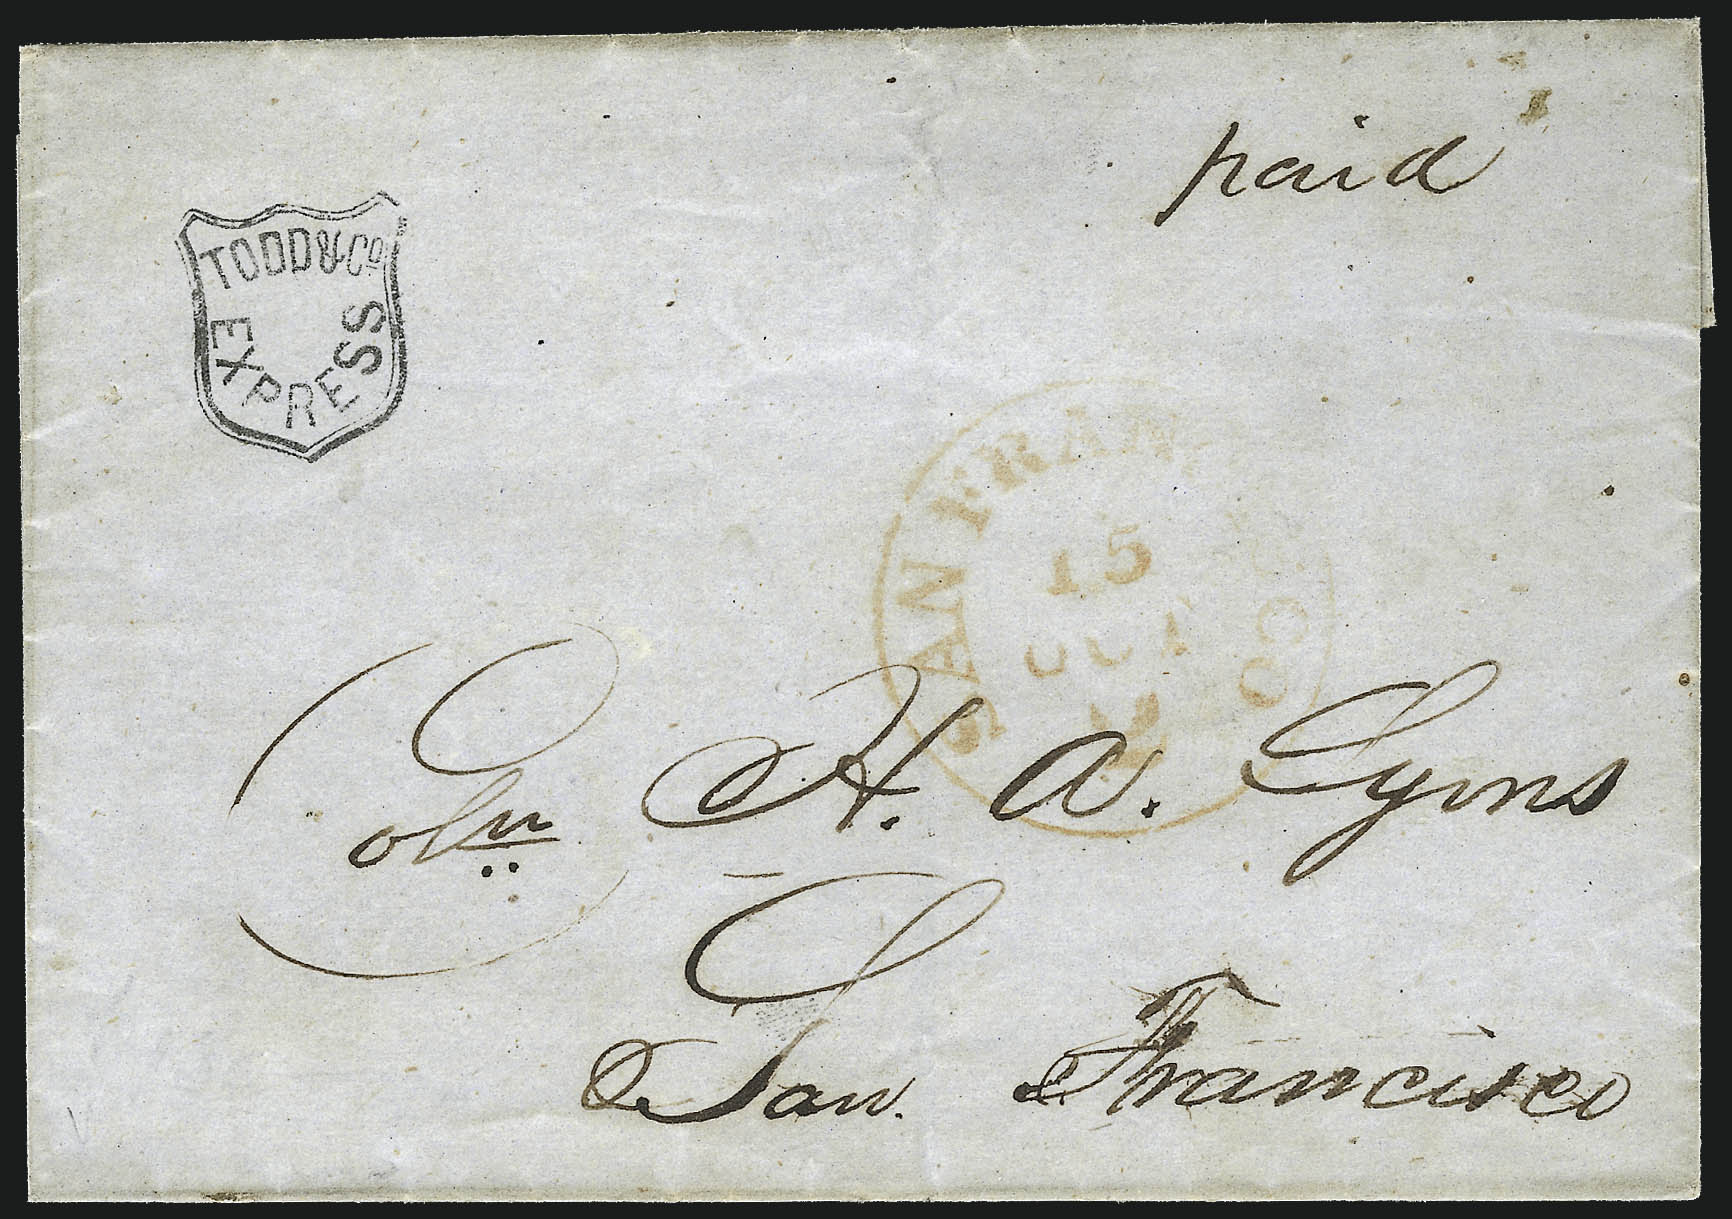 paid
TODD & Co
EXPRESS
SAN FRANCISCO
15
OCT
Coln H. A. Lyons
San Francisco